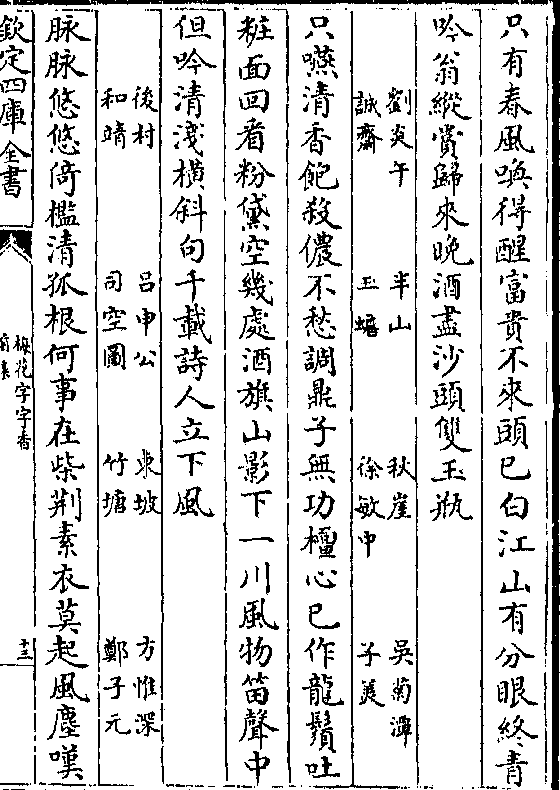 只有春風喚得醒富貴不來頭已白江山有分眼終青
吟翁縱賞歸來晚酒盡沙頭雙玉瓶
劉炎午　半山　秋崖　吳菊潭
誠齋　玉蟾　徐敏中　子羙
只嚥清香飽殺儂不愁調鼎子無功檀心已作龍鬚吐
粧面回看粉黛空幾處酒旗山影下一川風物笛聲中
但吟清淺橫斜句千載詩人立下風
後村　呂申公　東坡　方惟深
和靖　司空圖　竹塘　鄭子元
脉脉悠悠倚檻清孤根何事在柴荆素衣莫起風塵嘆
欽定四庫全書
梅花字字香
前集
十三